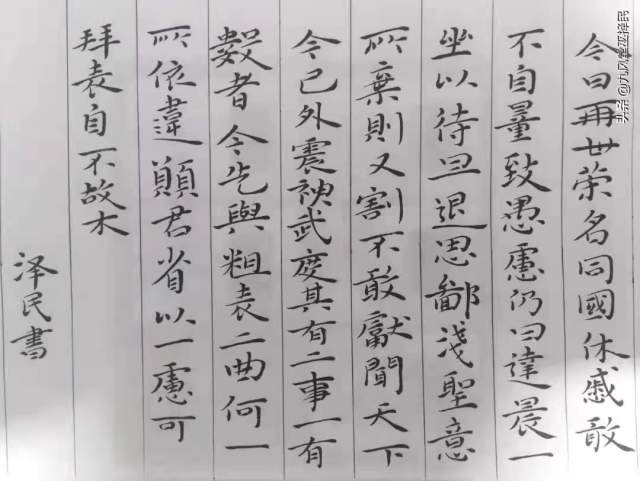 今曰再世荣名同國休慼敢
不自量致愚慮仍曰達晨一
坐以待旦退思鄙淺聖意
所棄則又割不敢獻聞天下
今已外震神武度其有二事一有
數者今先與粗表二曲何一
所依違願君省以一慮可
拜表自不故木
泽民書
头条 @九风堂巫泽民